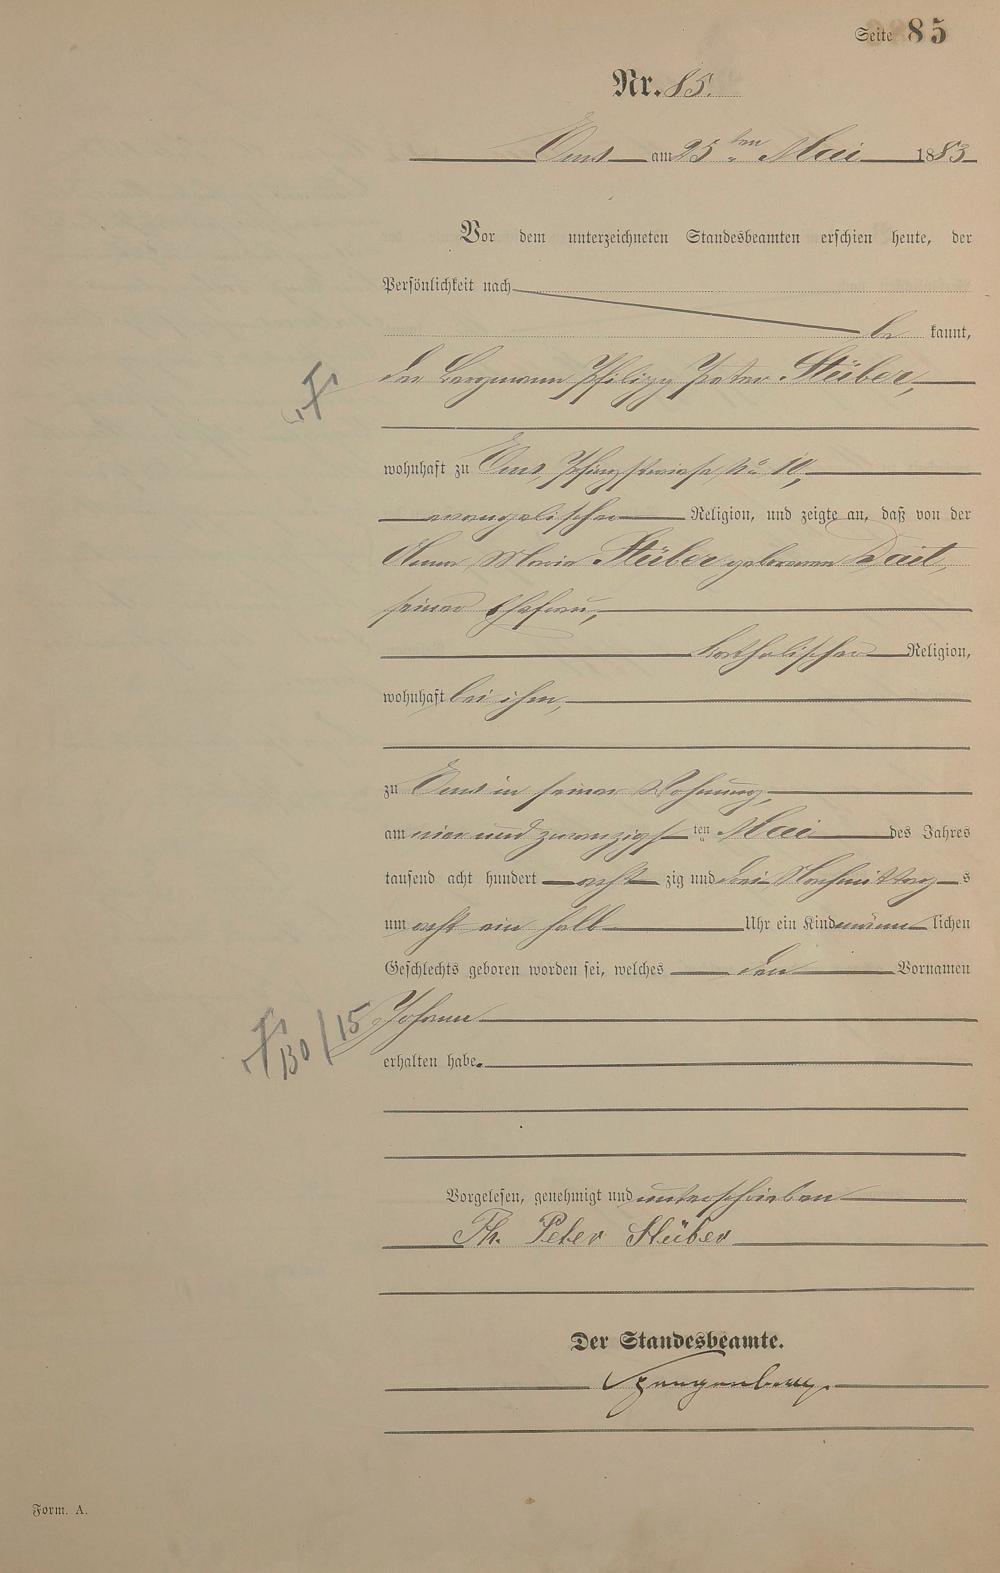 Seite 85
Nr. 85.
Ems am 25ten Mai 1883
Vor dem unterzeichneten Standesbeamten erschien heute, der
Persönlichkeit nach
be kannt,
der Bergmann Philipp Peter Stüber,
wohnhaft zu Ems, Pfingstwiese No 10,
evangelischer Religion, und zeigte an, daß von der
Anna Maria Stüber geborenen Dait,
seiner Ehefrau,
katholischer Religion,
wohnhaft bei ihm,
zu Ems in seiner Wohnung,
am vier und zwanzigsten Mai des Jahres
tausend acht hundert acht zig und drei Nachmittags
um acht ein halb Uhr ein Kind männlichen
Geschlechts geboren worden sei, welches den Vornamen
Johann
130/15
erhalten habe.
Vorgelesen, genehmigt und unterschrieben
Ph. Peter Stüber
Der Standesbeamte.
Spangenberg.
Form. A.